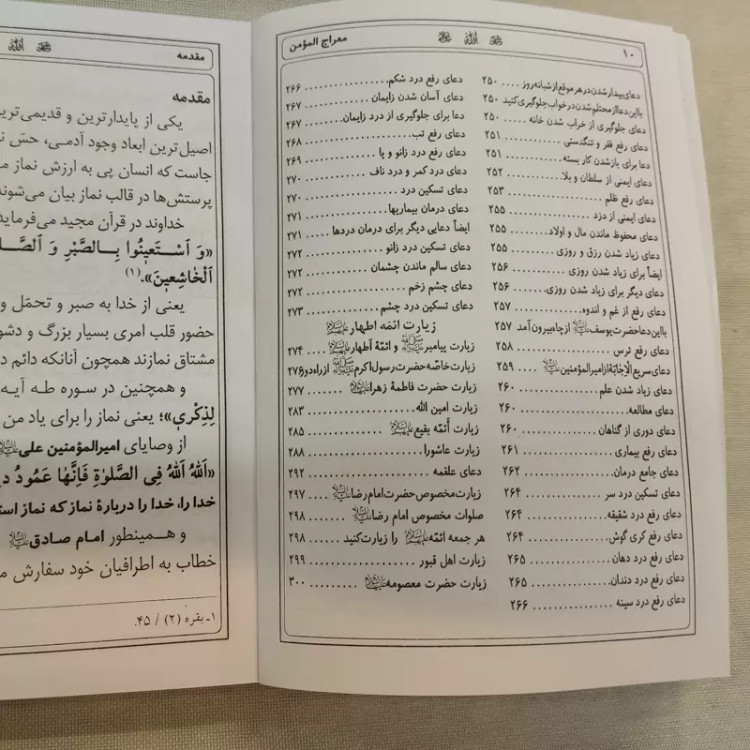 ۱۰
معراج المؤمن
دعای بیدار شدن در هر موقع از شبانه روز ..... ۲۵۰
بااین دعا از محتلم شدن در خواب جلوگیری کنید ۲۵۰
دعای جلوگیری از خراب شدن خانه ..... ۲۵۰
دعای رفع فقر و تنگدستی ..... ۲۵۱
دعا برای باز شدن کار بسته ..... ۲۵۱
دعای ایمنی از سلطان و بلا ..... ۲۵۲
دعای رفع ظلم ..... ۲۵۳
دعای ایمنی از دزد ..... ۲۵۵
دعای محفوظ ماندن مال و اولاد ..... ۲۵۵
دعای زیاد شدن رزق و روزی ..... ۲۵۵
ایضاً برای زیاد شدن روزی ..... ۲۵۶
دعای دیگر برای زیاد شدن روزی. ۲۵۶
دعای رفع از غم و اندوه ..... ۲۵۷
بااین دعا حضرت یوسف از چاه بیرون آمد ۲۵۷
دعای رفع ترس ..... ۲۵۸
دعای سریع الإجابة از امیرالمؤمنین ..... ۲۵۹
دعای زیاد شدن علم ..... ۲۶۰
دعای مطالعه ..... ۲۶۰
دعای دوری از گناهان ..... ۲۶۰
دعای رفع بیماری ..... ۲۶۱
دعای جامع درمان ..... ۲۶۲
دعای تسکین درد سر ..... ۲۶۴
دعای رفع درد شقیقه ..... ۲۶۴
دعای رفع کری گوش ..... ۲۶۴
دعای رفع درد دهان ..... ۲۶۵
دعای رفع درد دندان ..... ۲۶۵
دعای رفع درد سینه ..... ۲۶۶
دعای رفع درد شکم ..... ۲۶۶
دعای آسان شدن زایمان ..... ۲۶۷
دعا برای جلوگیری از درد زایمان ..... ۲۶۷
دعای رفع تب ..... ۲۶۸
دعای رفع درد زانو و پا ..... ۲۶۹
دعای درد کمر و درد ناف ..... ۲۷۰
دعای تسکین درد ..... ۲۷۰
دعای درمان بیماریها ..... ۲۷۱
ایضاً دعایی دیگر برای درمان دردها ..... ۲۷۱
دعای تسکین درد زانو ..... ۲۷۲
دعای سالم ماندن چشمان ..... ۲۷۲
دعای چشم زخم ..... ۲۷۲
دعای تسکین درد چشم ..... ۲۷۳
زیارت ائمه اطهار
زیارت پیامبر و ائمّه أطهار ..... ۲۷۴
زیارت خاصّه حضرت رسول اکرم از راه دور ۲۷۶
زیارت حضرت فاطمة زهرا ..... ۲۷۷
زیارت امین الله ..... ۲۸۳
زیارت أئمّه بقیع ..... ۲۸۵
زیارت عاشورا ..... ۲۸۸
دعای علقمه ..... ۲۹۲
زیارت مخصوص حضرت امام رضا ..... ۲۹۷
صلوات مخصوص امام رضا ..... ۲۹۸
هر جمعه ائمّه را زیارت کنید ..... ۲۹۸
زیارت اهل قبور ..... ۲۹۹
زیارت حضرت معصومه ..... ۳۰۰
مقدمه
مقدمه
یکی از پایدارترین و قدیمی‌ترین
اصیل‌ترین ابعاد وجود آدمی، حسّ
جاست که انسان پی به ارزش نماز
پرستش‌ها در قالب نماز بیان می‌شوند
خداوند در قرآن مجید می‌فرماید
«وَ اسْتَعِينُوا بِالصَّبْرِ وَ
الْخَاشِعِينَ».(۱)
یعنی از خدا به صبر و تحمّل و
حضور قلب امری بسیار بزرگ و
مشتاق نمازند همچون آنانکه دائم
و همچنین در سوره طه آیه
لِذِكْرِي»؛ یعنی نماز را برای یاد من
از وصایای امیرالمؤمنین علی
«اَللهَ اَللهَ فِی الصَّلوٰةِ فَاِنَّهٰا عَمُودُ
خدا را، خدا را دربارهٔ نماز که نماز
و همینطور امام صادق
خطاب به اطرافیان خود سفارش
۱ـ بقره (۲) / ۴۵.